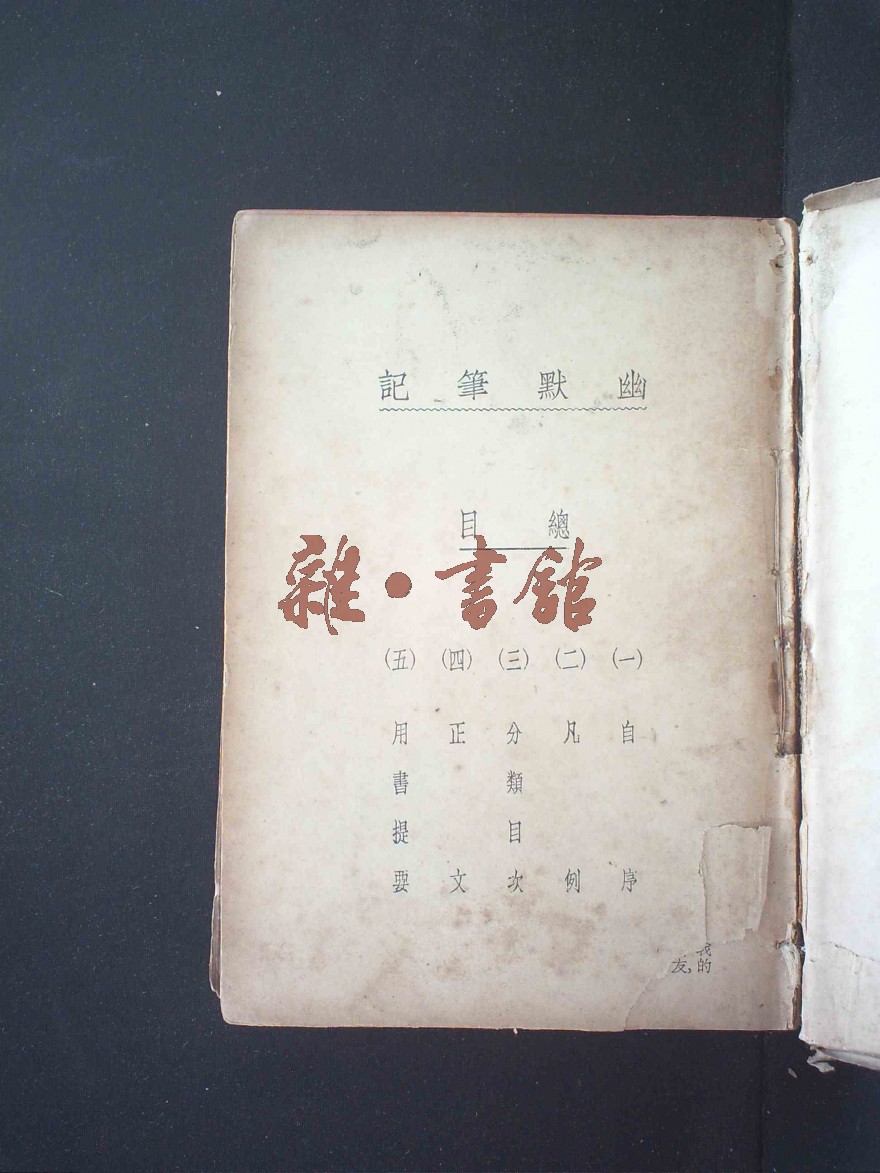 幽默筆記
總目
雜·書館
(一)自序
(二)凡例
(三)分類目次
(四)正文
(五)用書提要
我的
友,